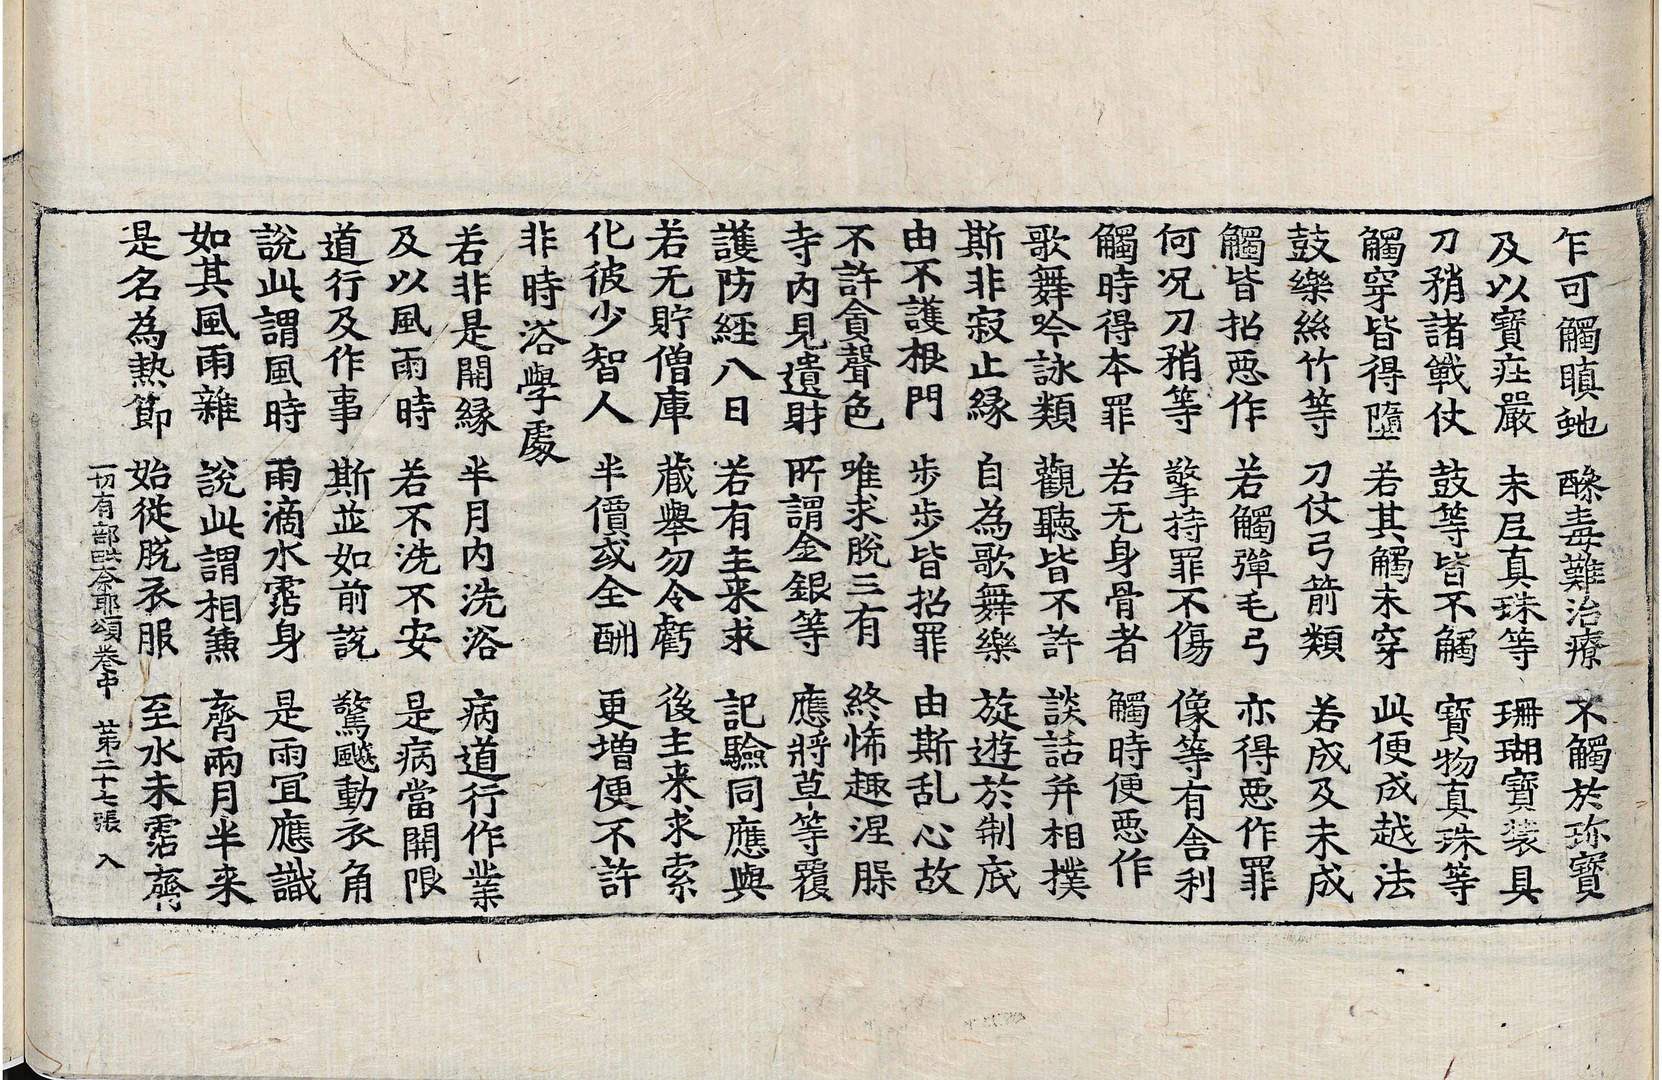 乍可觸瞋虵　酴毒難治療　不觸於珎寶
及以寶疘嚴　末尼真珠等　珊瑚寶裝具
刀矟諸戰仗　鼓等皆不觸　寶物真珠等
觸穿皆得墮　若其觸未穿　此便成越法
鼓樂絲竹等　刀仗弓箭類　若成及未成
觸皆招惡作　若觸彈毛弓　亦得惡作罪
何况刀矟等　擎持罪不傷　像等有舍利
觸時得本罪　若无身骨者　觸時便惡作
歌舞吟詠類　觀聽皆不許　談話并相撲
斯非寂止緣　自為歌舞樂　旋遊於制底
由不護根門　步步皆招罪　由斯乱心故
不許貪聲色　唯求脫三有　終悕趣涅槃
寺內見遺財　所謂金銀等　應將草等覆
護防經八日　若有主来求　記驗同應與
若无貯僧庫　蔵舉勿令虧　後主来求索
化彼少智人　半價或全酬　更增便不許
非時浴學處
若非是開緣　半月內洗浴　病道行作業
及以風雨時　若不洗不安　是病當開限
道行及作事　斯並如前説　驚飈動衣角
說此謂風時　雨滴水霑身　是雨冝應識
如其風雨雜　說此謂相兼　齊兩月半来
是名為熱節　始從脫衣服　至水未霑齊
一切有部毗奈耶頌卷中　苐二十七張　入